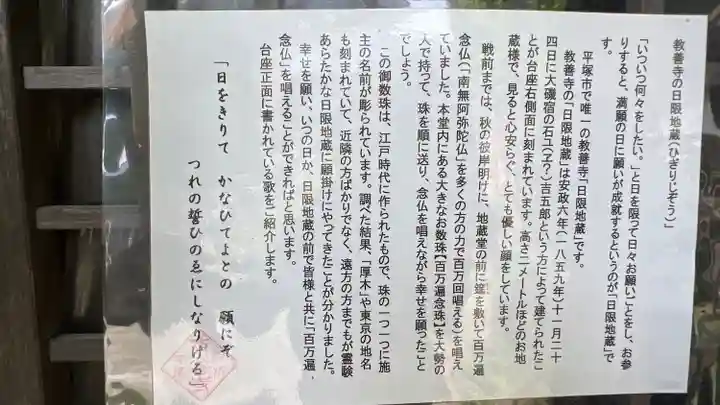 教善寺の日限地蔵(ひぎりじぞう)
「いついつ何々をしたい。」と日を限って日々お願いごとをし、お参
りすると、満願の日に願いが成就するというのが「日限地蔵」で
す。
平塚市で唯一の教善寺「日限地蔵」です。
教善寺の「日限地蔵」は安政六年(一八五九年)十一月二十
四日に大磯宿の石ユ(ヱ?)吉五郎という方によって建てられたこ
とが台座右側面に刻まれています。高さ二メートルほどのお地
蔵様で、見ると心安らぐ、とても優しい顔をしています。
戦前までは、秋の彼岸明けに、地蔵堂の前に筵を敷いて百万遍
念仏(「南無阿弥陀仏」を多くの方の力で百万回唱える)を唱え
ていました。本堂内にある大きなお数珠【百万遍念珠】を大勢の
人で持って、珠を順に送り、念仏を唱えながら幸せを願ったこと
でしょう。
この御数珠は、江戸時代に作られたもので、珠の一つ一つに施
主の名前が彫られています。調べた結果、「厚木」や東京の地名
も刻まれていて、近隣の方ばかりでなく、遠方の方までもが霊験
あらたかな日限地蔵に願掛けにやってきたことが分かりました。
幸せを願い、いつの日か、日限地蔵の前で皆様と共に「百万遍
念仏」を唱えることができればと思います。
台座正面に書かれている歌をご紹介します。
「日をきりて かなひてよとの 願にぞ
つれの誓ひのゑにしなりける」